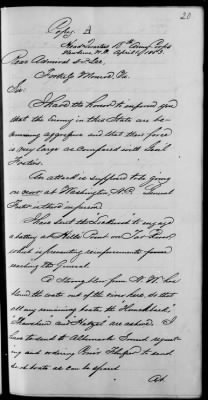 20
Copy. A
Head Quarters 18th Army Corps
Newbern, N.C. April 1, 1863.
Rear Admiral S. P. Lee,
Fortress Monroe, Va.
Sir:
I have the honor to inform you
that the Enemy in this State are be-
coming aggressive and that their force
is very large as compared with Genl
Foster's.
An attack is supposed to be going
on now at Washington, N.C. General
Foster is there in person.
I have sent the "Lockwood" to engage
a battery at Hills Point on Tar River
which is preventing reinforcements from
reaching the General.
A strong blow from N.W. has
taken the water out of the river here, so that
all my remaining boats the "Hunchback,"
"Hawkins" and "Hetzel" are ashore. I
have to send to Albemarle Sound request-
ing and ordering to send
such boats as can be spared